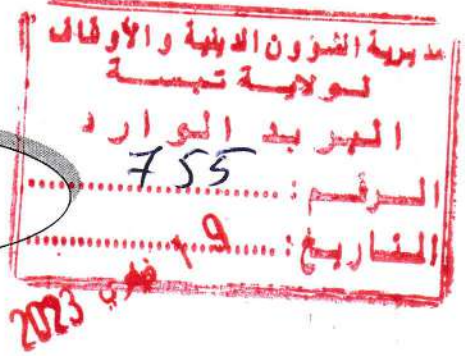 مديرية الشؤون الدينية والأوقاف
لولاية تبسة
البريد الوارد
الرقم: 755
التاريخ: 19 فيفري 2023